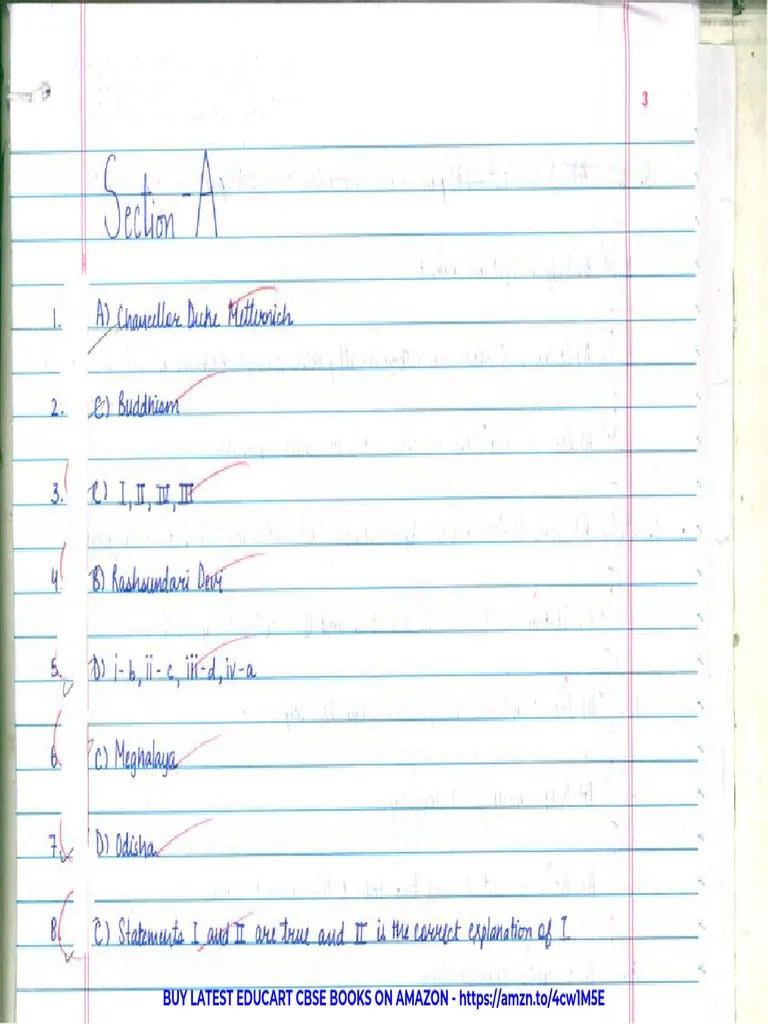 3
Section - A
1. A) Chancellor Duke Metternich
2. C) Buddhism
3. C) I, II, IV, III
4. B) Rashsundari Devi
5. D) i-b, ii-c, iii-d, iv-a
6. C) Meghalaya
7. D) Odisha
8. C) Statements I and II are true and II is the correct explanation of I.
BUY LATEST EDUCART CBSE BOOKS ON AMAZON - https://amzn.to/4cw1M5E